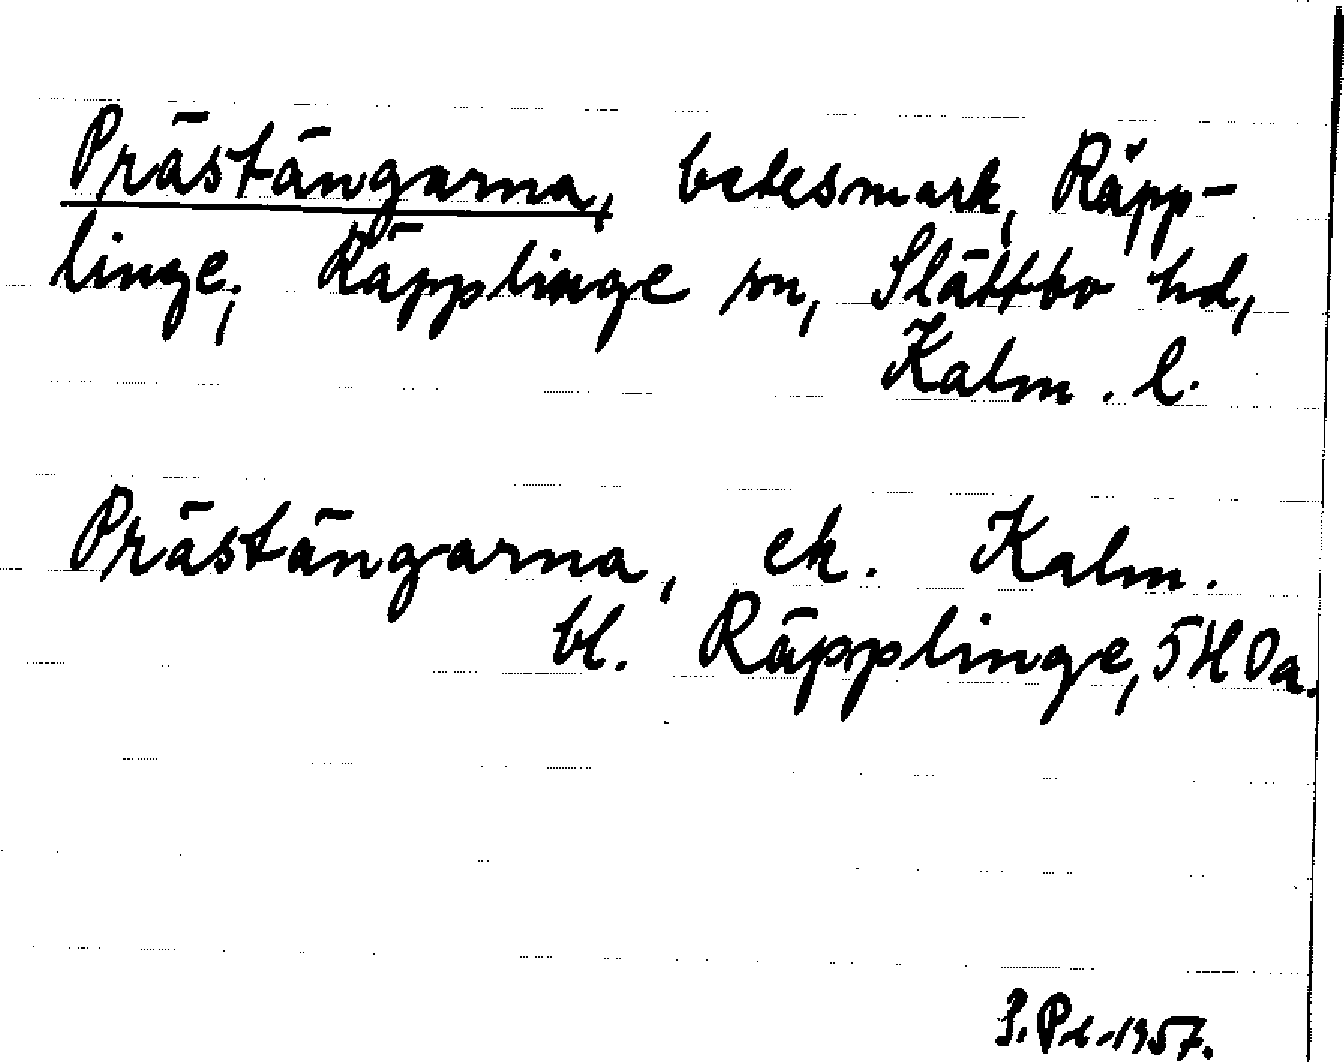 Prästängarna, betesmark, Räpp-
linge, Räpplinge sn, Slättbo hd,
Kalm. l.
Prästängarna, ek. Kalm.
bl. Räpplinge, 5H0a.
1957.